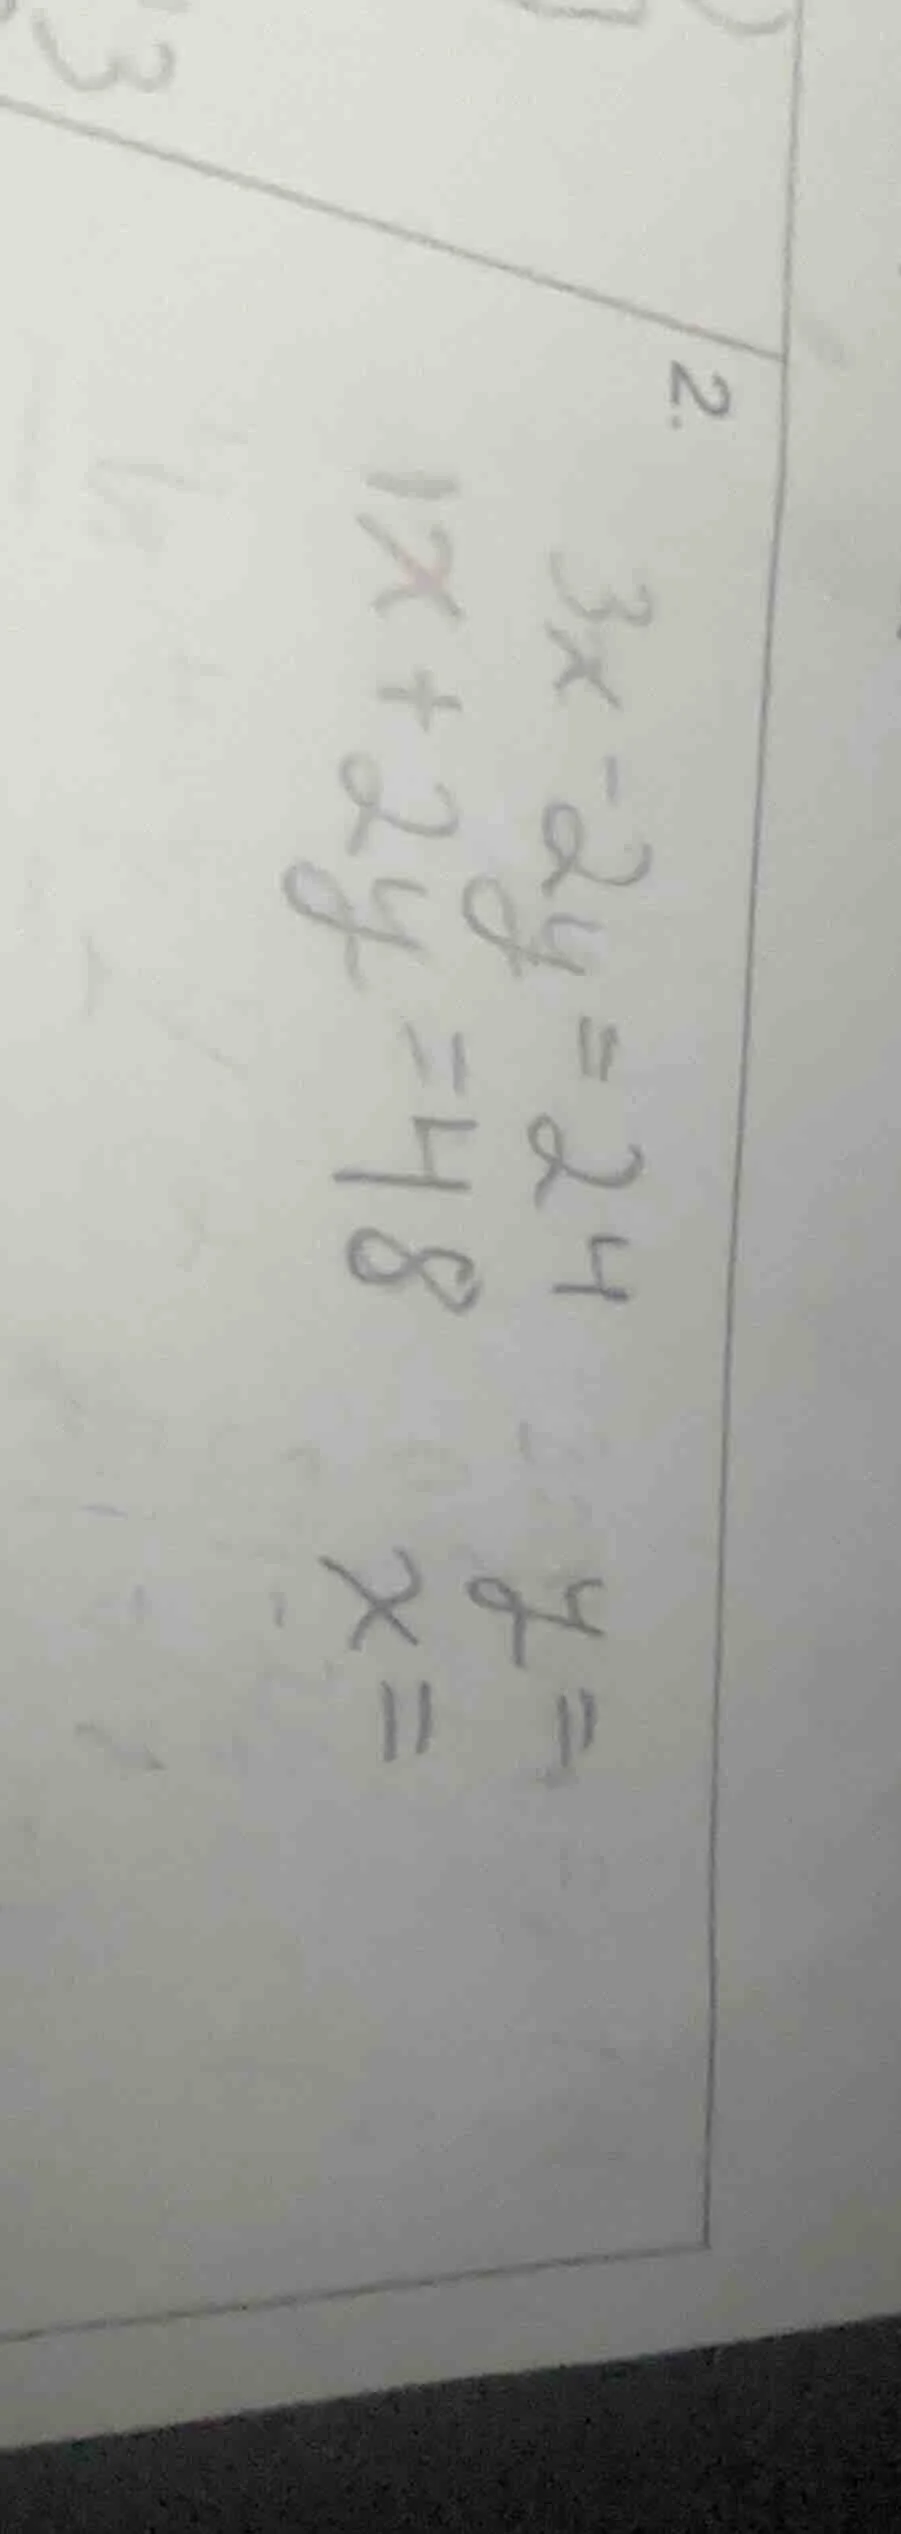 3
2.
3x - 2y = 24 y =
1x + 2y = 48 x =